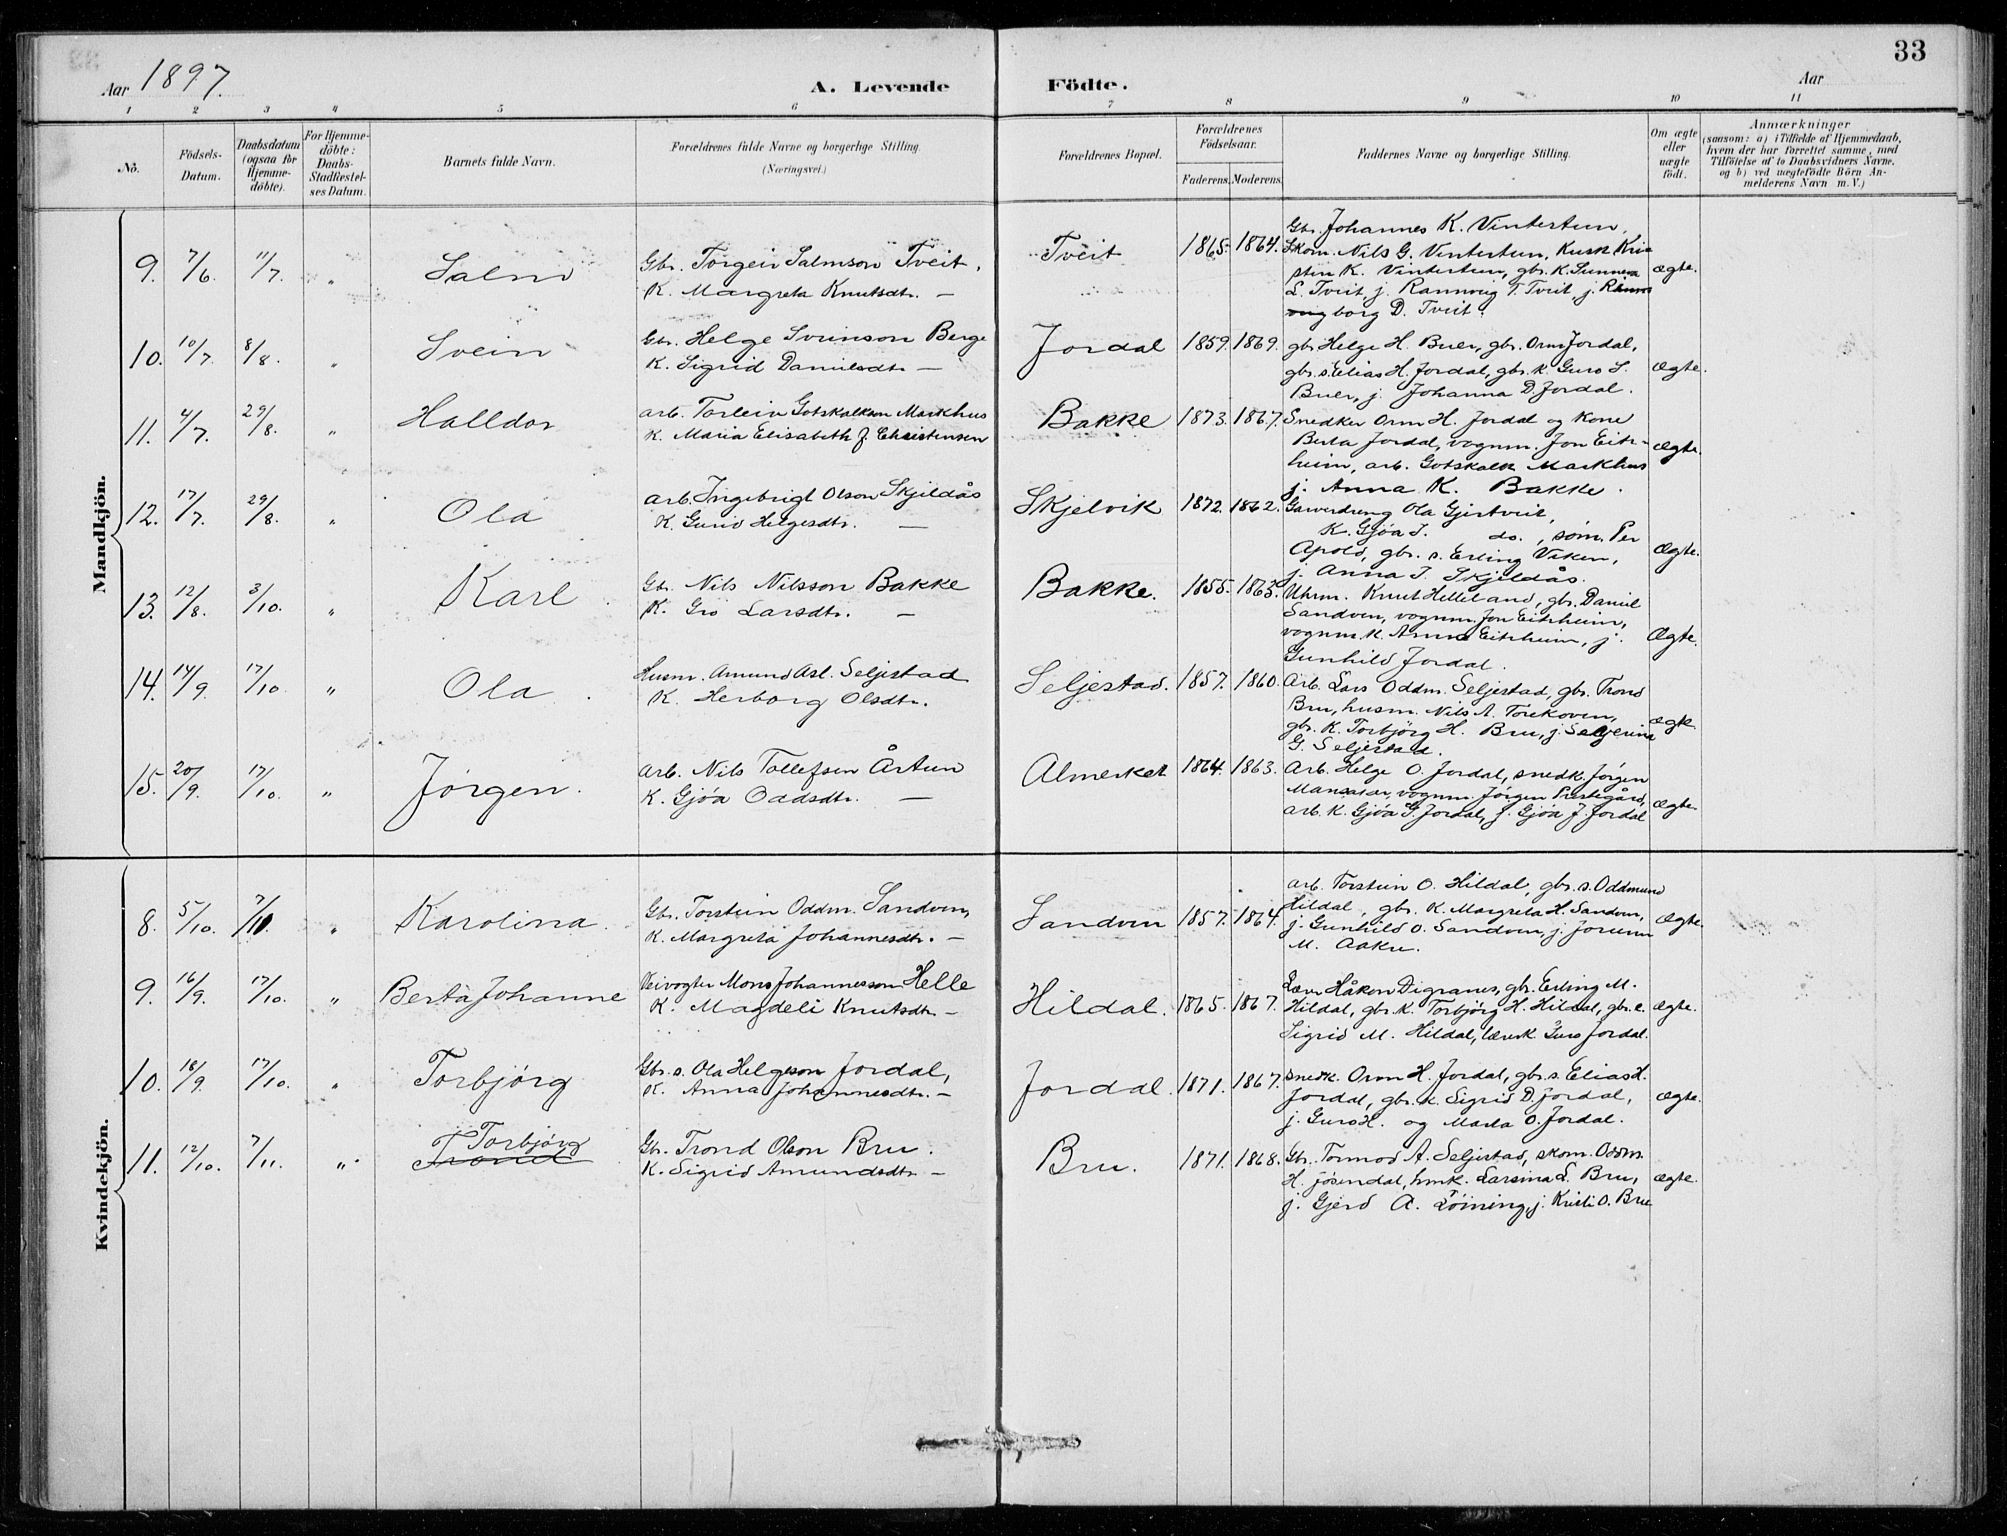 33
Aar 1897.
A. Levende Födte.
Aar
1 2 3 4 5 6 7 8 9 10 11
No.
Födsels-Datum.
Daabsdatum (ogsaa for Hjemme-döbte).
For Hjemme-döbte: Daabs-Stadfestel-ses Datum.
Barnets fulde Navn.
Forældrenes fulde Navne og borgerlige Stilling. (Næringsvei.)
Forældrenes Bopæl.
Forældrenes Födselsaar.
Faderens. Moderens.
Faddernes Navne og borgerlige Stilling.
Om ægte eller uægte födt.
Anmærkninger
(saasom: a) i Tilfælde af Hjemmedaab,
hvem der har forrettet samme, med
Tilföielse af to Daabsvidners Navne,
og b) ved uægtefödte Börn An-
melderens Navn m. V.)
Mandkjön.
9. 7/6. 11/7. " Salm
Gbr. Torgeir Salmson Tveit.
K. Margreta Knutsdtr. —
Tveit 1865. 1864.
Gbr. Johannes K. Vintertun,
Skom. Nils G. Vintertun, Kusk Kri-
stin K. Vintertun, gbr. K. Sunniva
L. Tveit, j. Rannveig T. Tveit, j.
borg D. Tveit.
Ægte.
10. 10/7. 8/8. " Svein
Gbr. Helge Svinson Berge
K. Sigrid Danielsdtr. —
Jordal 1859. 1869.
gbr. Helge H. Buer, gbr. Orm Jordal,
gbr. s. Elias H. Jordal, gbr. K. Guro S.
Buer, j. Johanna D. Jordal.
Ægte.
11. 4/7. 29/8. " Halldor
arb. Torleiv Gotskalksn Markhus
K. Maria Elisabeth f. Christensen
Bakke 1873. 1867.
Snedker Orm H. Jordal og Kone
Berta Jordal, vognm. Jon Eitr-
heim, arb. Gotskalk Markhus
j. Anna K. Bakke.
Ægte.
12. 17/7. 29/8. " Ola
arb. Ingebrigt Olson Skjeldås
K. Guro Helgesdtr. —
Skjelvik 1872. 1862.
Garverdreng Ola Gjertveit,
K. Gjøa I. do., søm. Per
Apold, gbr. s. Erling Viken,
j. Anna I. Skjeldås.
Ægte.
13. 12/8. 3/10. " Karl
Gbr. Nils Nilsson Bakke
K. Gro Larsdtr. —
Bakke. 1855. 1863.
Uhrm. Knut Helleland, gbr. Daniel
Sandven, vognm. Jon Eitrheim,
vognm. K. Anna Eitrheim, j.
Gunhild Jordal.
Ægte.
14. 14/9. 17/10. " Ola
Husm. Amund Asl. Seljestad
K. Herborg Olsdtr.
Seljestad. 1857. 1860.
Arb. Lars Oddm. Seljestad, gbr. Trond
Bru, husm. Nils A.
gbr. K. Torbjörg H. Bru, j. Severina
G. Seljestad.
Ægte
15. 20/9. 17/10. " Jørgen.
arb. Nils Tollefsen Årtun
K. Gjøa Oddsdtr. —
Almerket 1864. 1863.
Arb. Helge O. Jordal, snedk. Jørgen
Mansaker, vognm. Jørgen Prestegård,
arb. K. Gjøa G. Jordal, j. Gjøa J. Jordal
Ægte.
Kvindekjön.
8. 5/10. 7/11. " Karolina.
Gbr. Torstein Oddm. Sandven,
K. Margreta Johannesdtr. —
Sandven 1857. 1864.
arb. Torstein O. Hildal, gbr. s. Oddmund
Hildal, gbr. K. Margreta H. Sandven,
j. Gunhild O. Sandven, j. Jorunn
M. Aaku.
Ægte.
9. 16/9. 17/10. " Berta Johanne
Veivogter Mons Johannesson Helle
K. Magdeli Knutsdtr. —
Hildal. 1865. 1867.
Lærer Håkon Digranes, gbr. Erling M.
Hildal, gbr. K. Torbjörg H. Hildal, gbr. e.
Sigrid M. Hildal, lærerk. Guro Jordal.
Ægte.
10. 18/9. 17/10. " Torbjørg
Gbr. s. Ola Helgeson Jordal,
K. Anna Johannesdtr. —
Jordal. 1871. 1867.
snedk. Orm H. Jordal, gbr. s. Elias H.
Jordal, gbr. K. Sigrid D. Jordal,
j. Guro H. og Marta O. Jordal.
Ægte.
11. 12/10. 7/11. " Torbjörg
Trond
Gbr. Trond Olson Bru.
K. Sigrid Amundsdtr. —
Bru. 1871. 1868.
Gbr. Tormod A. Seljestad, skom. Oddm.
H. Jösendal, hmk. Larsina L. Bru,
j. Gjerd A. Löining, j. Kristi O. Bru
Ægte.